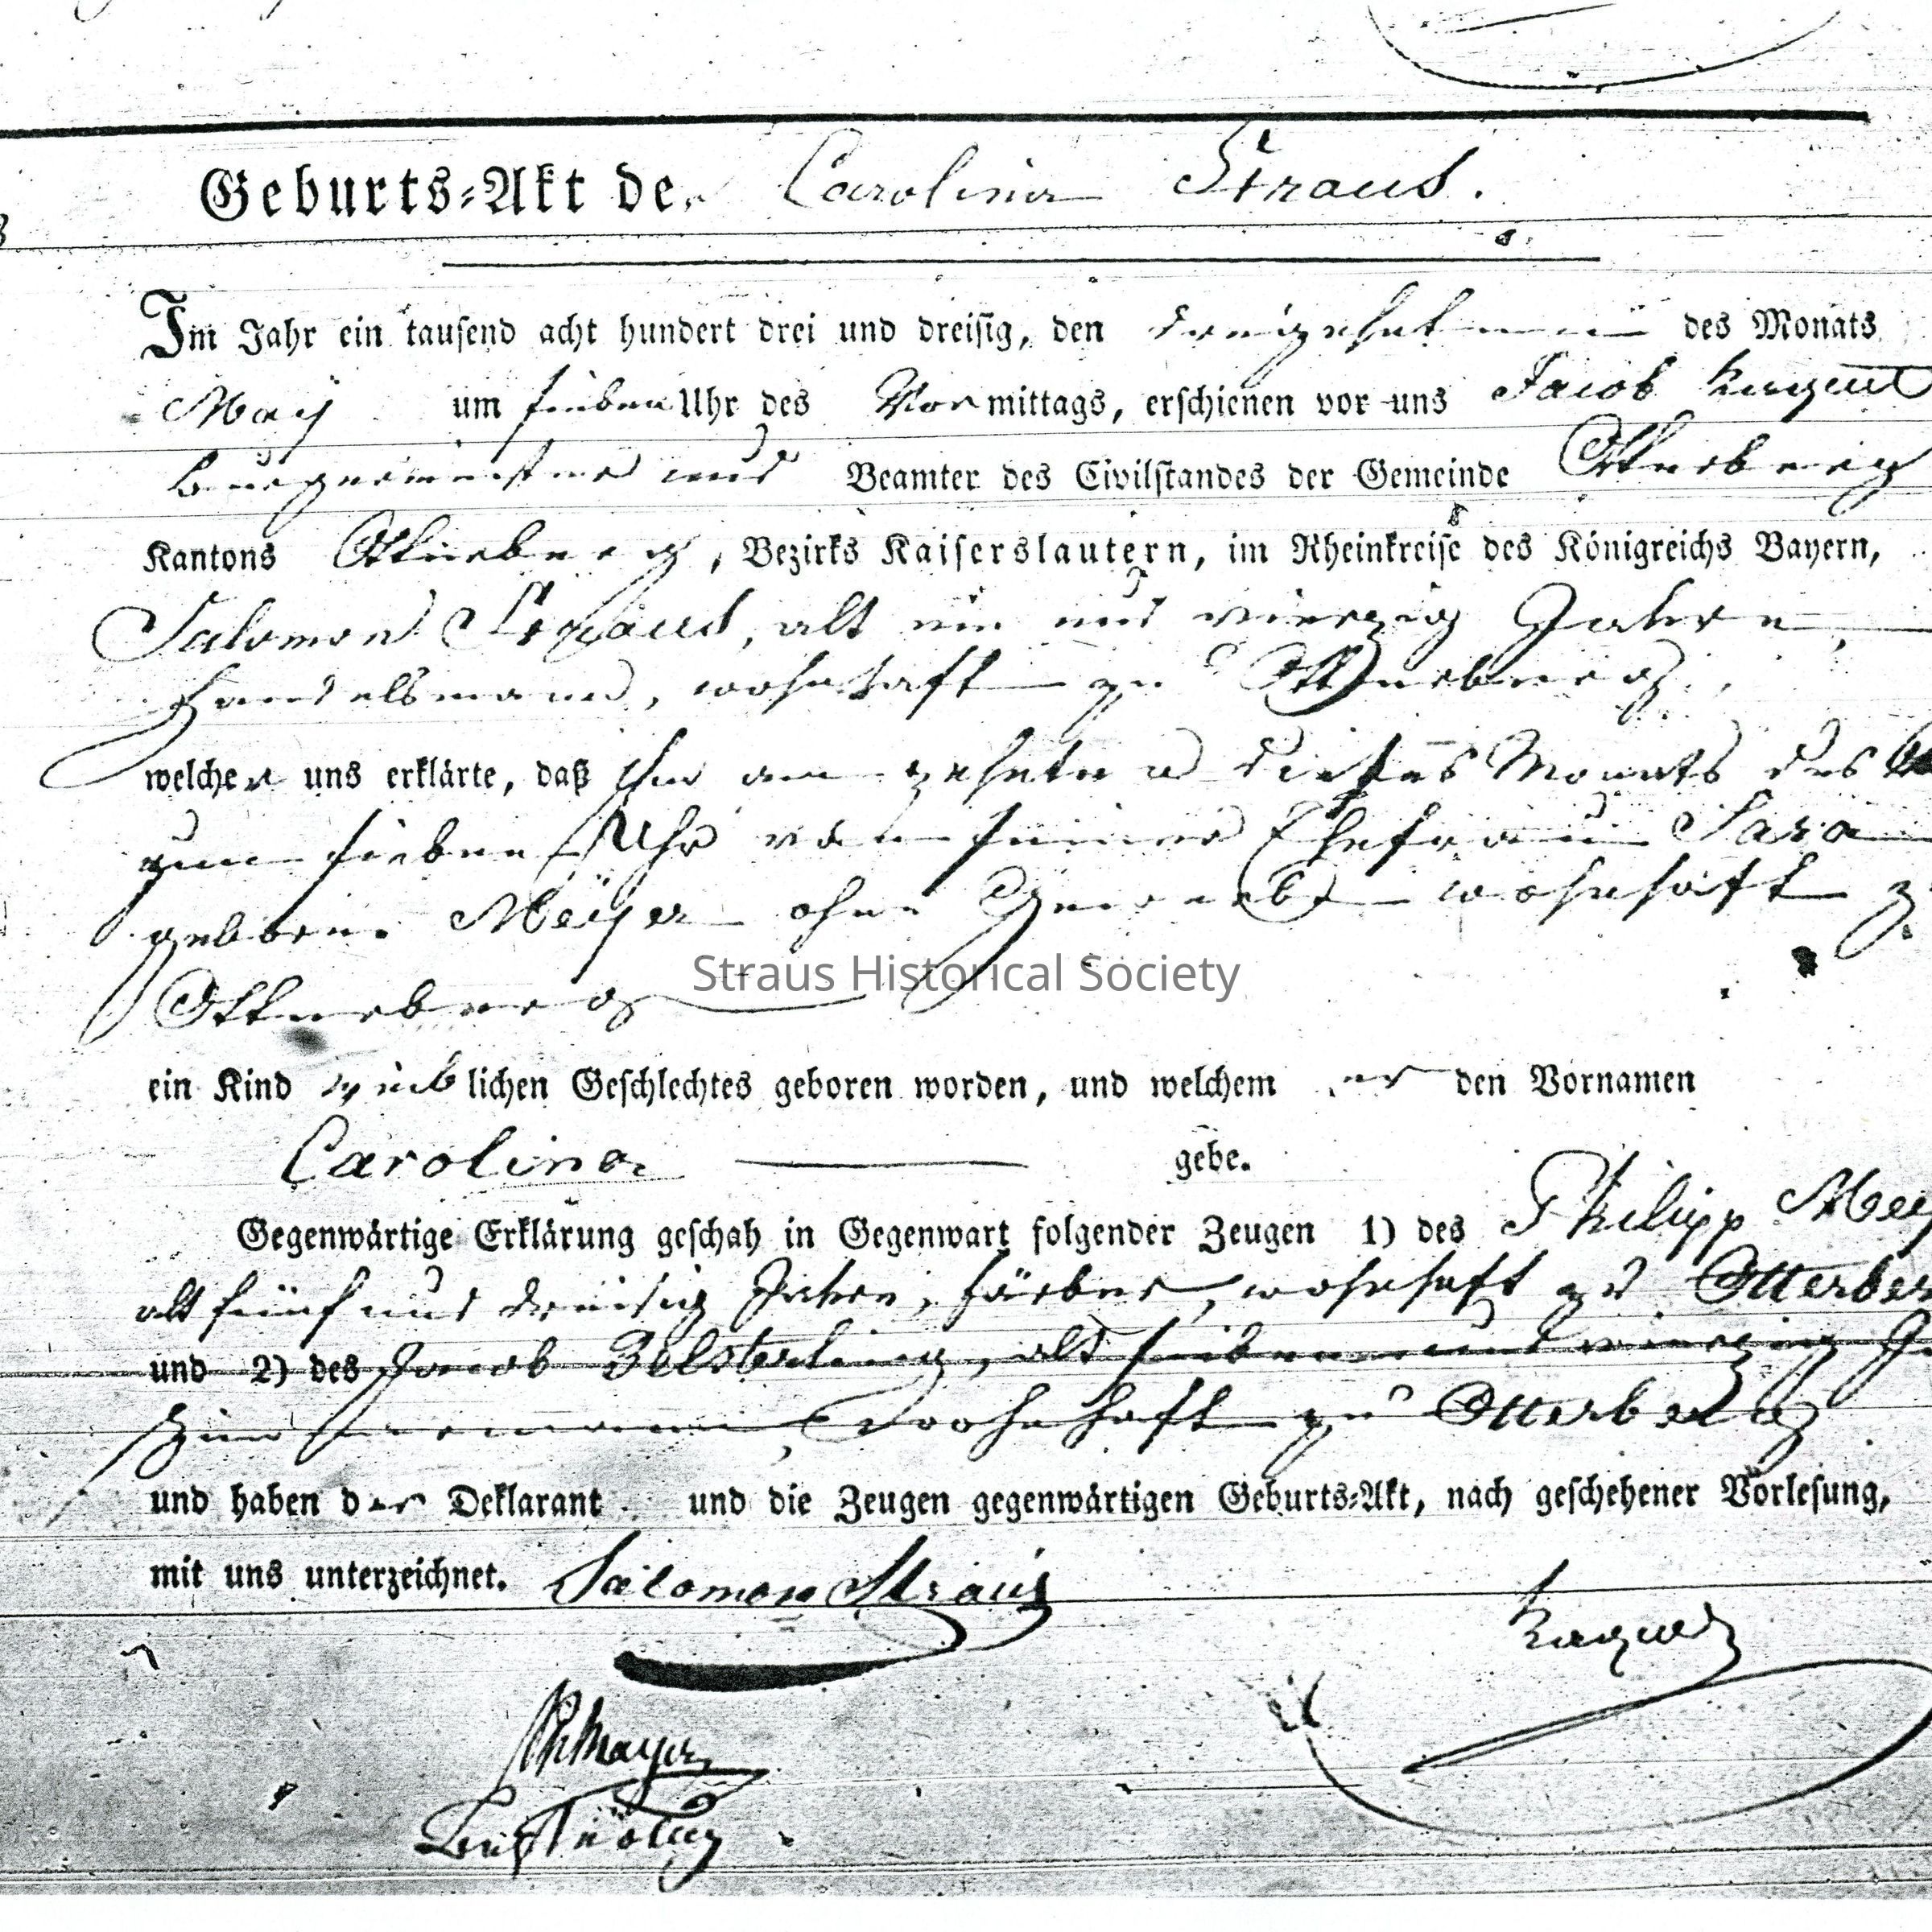 Geburts-Akt der Carolina Straus.
Im Jahr ein tausend acht hundert drei und dreisig, den dreizehnten des Monats
May um sieben Uhr des Vormittags, erschienen vor uns Jacob
Burgermeister und Beamter des Civilstandes der Gemeinde Otterberg
Kantons Otterberg, Bezirks Kaiserslautern, im Rheinkreise des Königreichs Bayern,
Salomon Straus, alt ein und vierzig Jahre,
Handelsmann, wohnhaft zu Otterberg,
welcher uns erklärte, daß ihm am zehnten dieses Monats des
um sieben Uhr von seiner Ehefrau Sara
geboren Meÿer ohne Gewerb wohnhaft z
Otterberg
Straus Historical Society
ein Kind weiblichen Geschlechtes geboren worden, und welchem er den Vornamen
Carolina gebe.
Gegenwärtige Erklärung geschah in Gegenwart folgender Zeugen 1) des Philipp Mey
alt fünf und dreisig Jahre, Färber, wohnhaft zu Otterber
und 2) des Jacob alt sieben und vierzig
wohnhaft zu Otterberg
und haben der Deklarant und die Zeugen gegenwärtigen Geburts-Akt, nach geschehener Vorlesung,
mit uns unterzeichnet. Salomon Straus
PhMayer